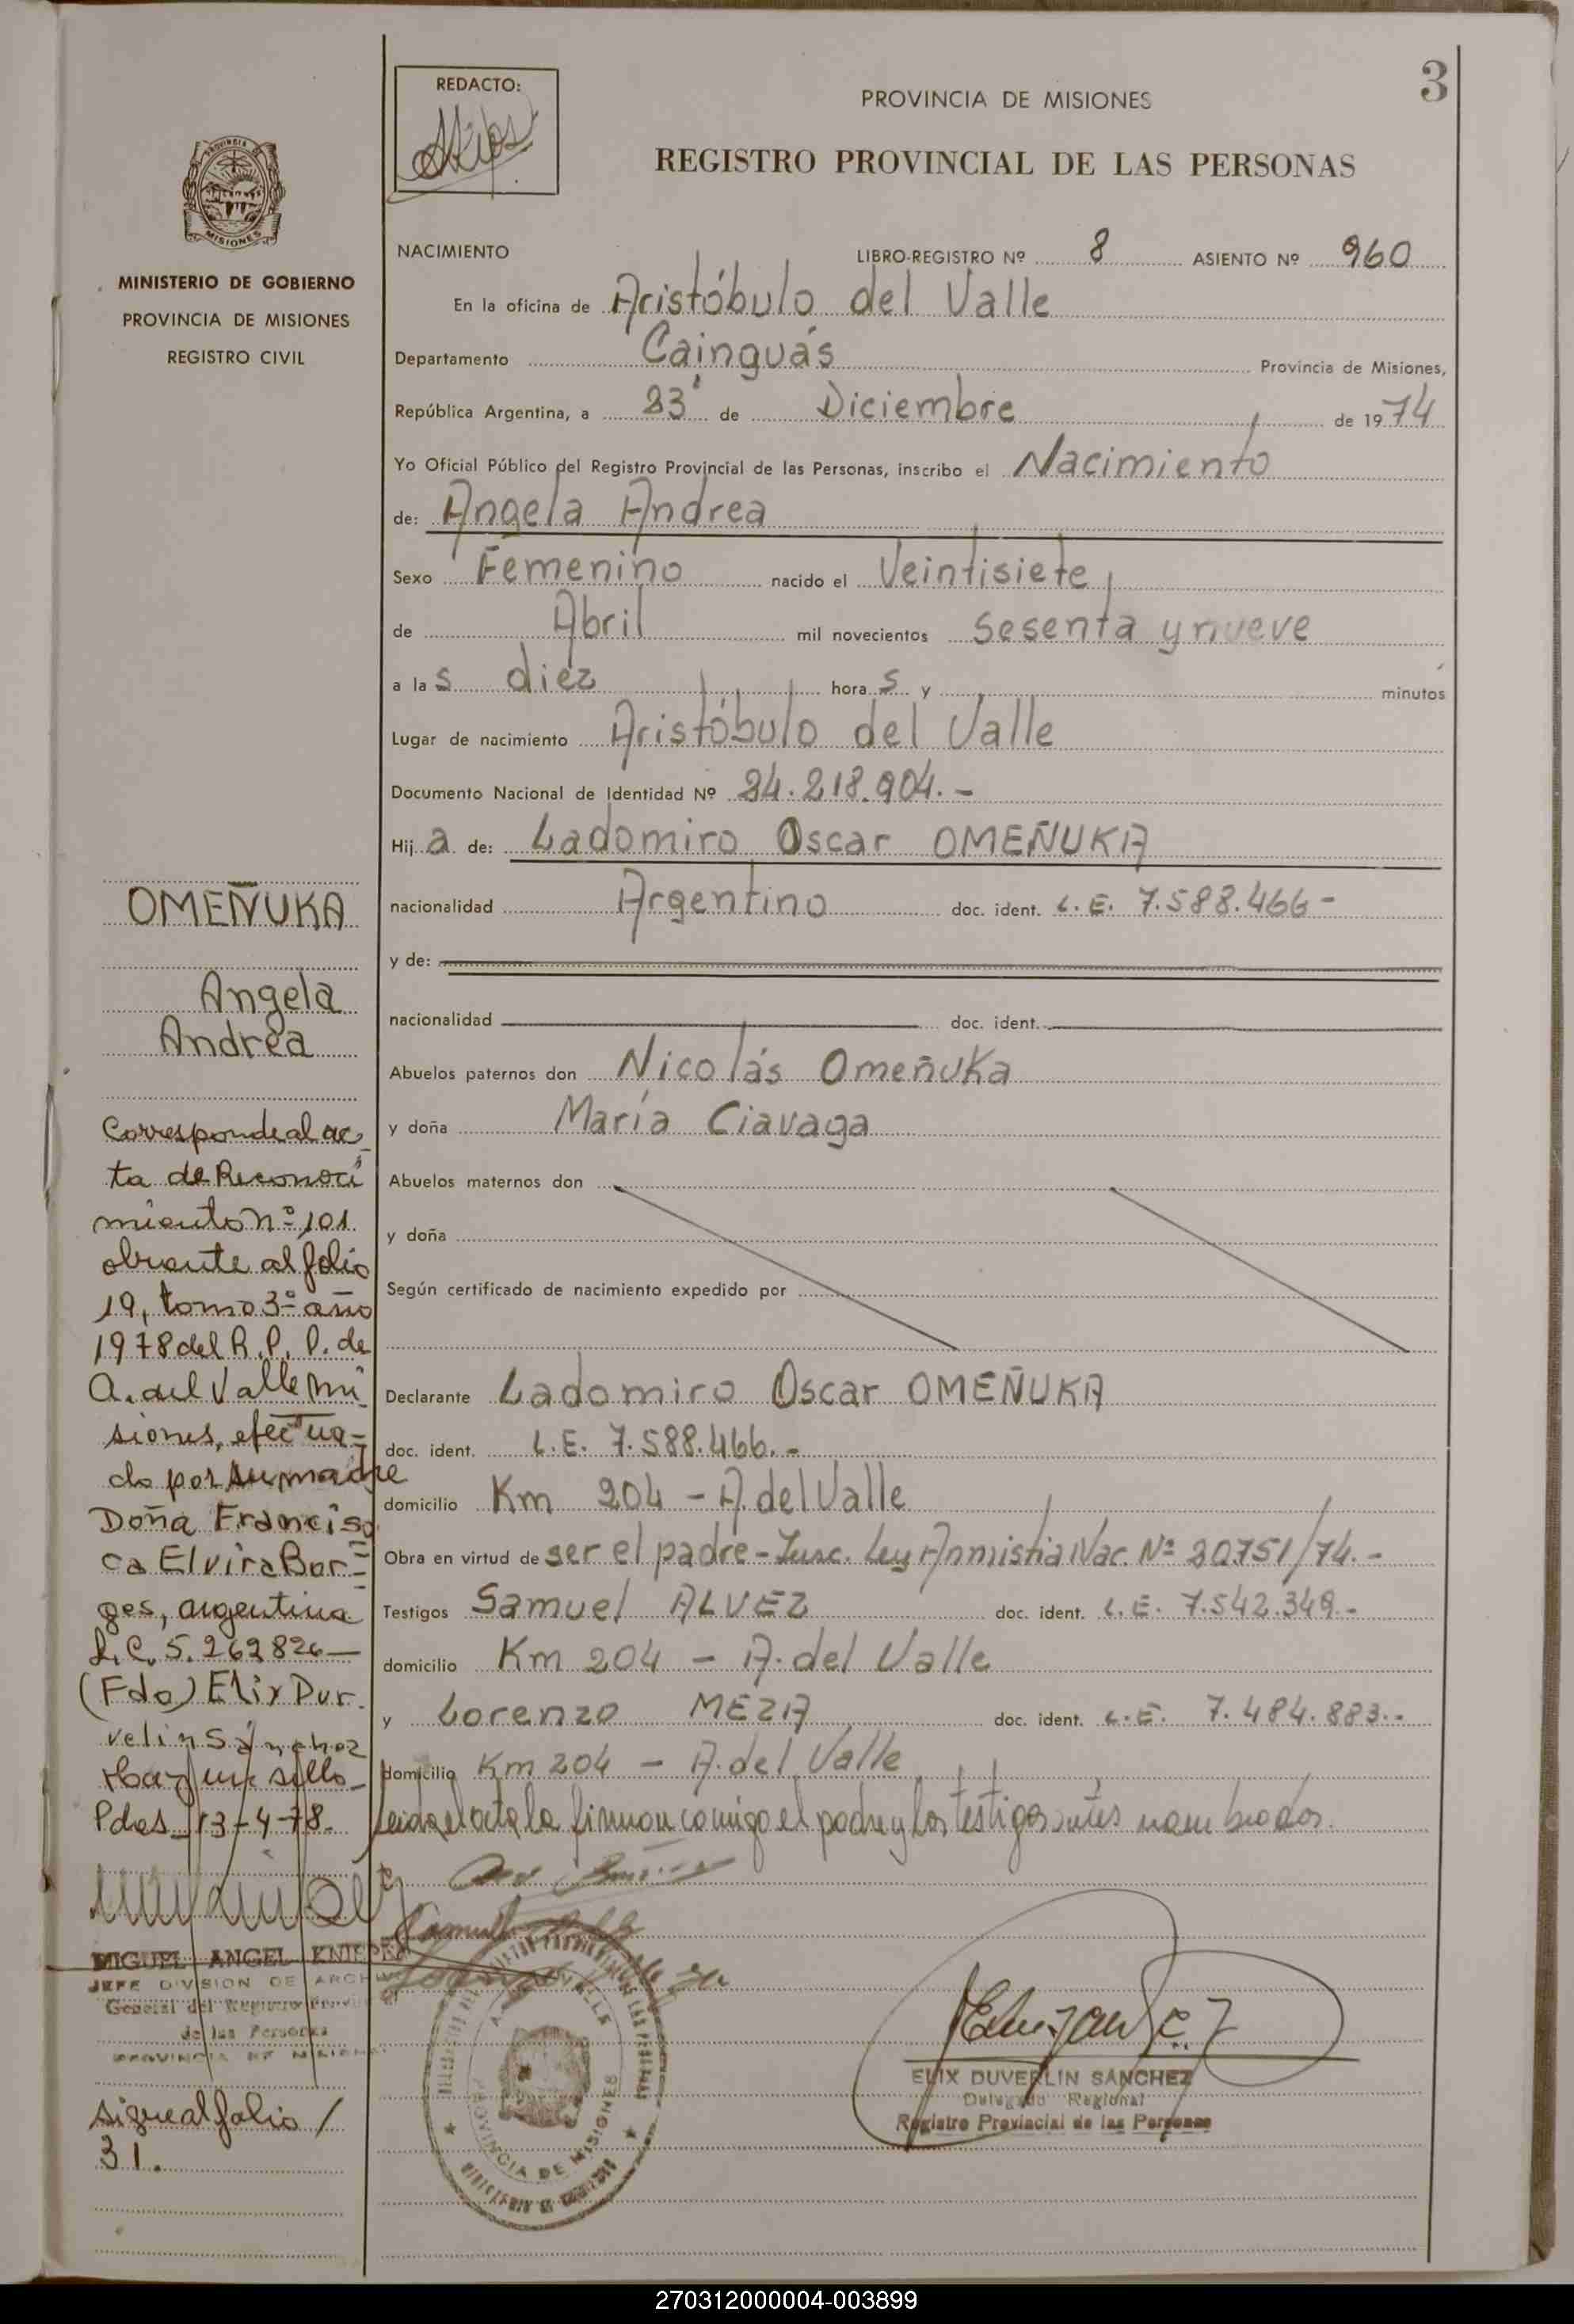 3
REDACTO:
PROVINCIA DE MISIONES
REGISTRO PROVINCIAL DE LAS PERSONAS
PROVINCIA
MISIONES
MINISTERIO DE GOBIERNO
PROVINCIA DE MISIONES
REGISTRO CIVIL
NACIMIENTO LIBRO-REGISTRO Nº 8 ASIENTO Nº 960
En la oficina de Aristóbulo del Valle
Departamento Cainguás Provincia de Misiones,
República Argentina, a 23 de Diciembre de 1974
Yo Oficial Público del Registro Provincial de las Personas, inscribo el Nacimiento
de: Angela Andrea
Sexo Femenino nacido el Veintisiete
de Abril mil novecientos sesenta y nueve
a las diez horas y minutos
Lugar de nacimiento Aristóbulo del Valle
Documento Nacional de Identidad Nº 24.218.904.-
Hija de: Ladomiro Oscar OMEÑUKA
nacionalidad Argentino doc. ident. L.E. 7.588.466-
y de:
nacionalidad doc. ident.
Abuelos paternos don Nicolás Omeñuka
y doña María Ciavaga
Abuelos maternos don
y doña
Según certificado de nacimiento expedido por
Declarante Ladomiro Oscar OMEÑUKA
doc. ident. L.E. 7.588.466.-
domicilio Km 204 - A. del Valle
Obra en virtud de ser el padre - Insc. Ley Amnistia Nac. Nº 20751/74.-
Testigos Samuel ALVEZ doc. ident. L.E. 7.542.349.-
domicilio Km 204 - A. del Valle
y Lorenzo MEZA doc. ident. L.E. 7.484.883.-
domicilio Km 204 - A. del Valle
Leida el acta la firman comigo el padre y los testigos antes nombrados.
OMEÑUKA
Angela
Andrea
Corresponde al ac
ta de Reconoci
miento nº 101
obrante al folio
19, tomo 3º año
1978 del R.P.P. de
A. del Valle Mi
siones, efectua=
do por su madre
Doña Francis
ca Elvira Bor=
ges, argentina
L.C. 5.269826-
(Fdo) Elix Duv
velin Sánchez
Hay un sello-
Pdas 13-4-78.
MIGUEL ANGEL
JEFE DIVISION DE ARCH
General del Registro Provin
de las Personas
PROVINCIA DE MISIONES
sigue al folio /
31.
PROVINCIA DE MISIONES
ELIX DUVERLIN SANCHEZ
Delegado Regional
Registro Provincial de las Personas
270312000004-003899